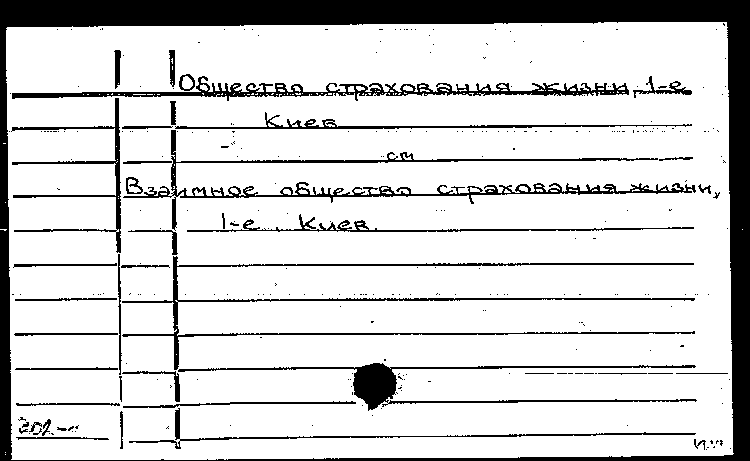 Общество страхования жизни, 1-е
Киев
см
Взаимное общество страхования жизни,
1-е. Киев.